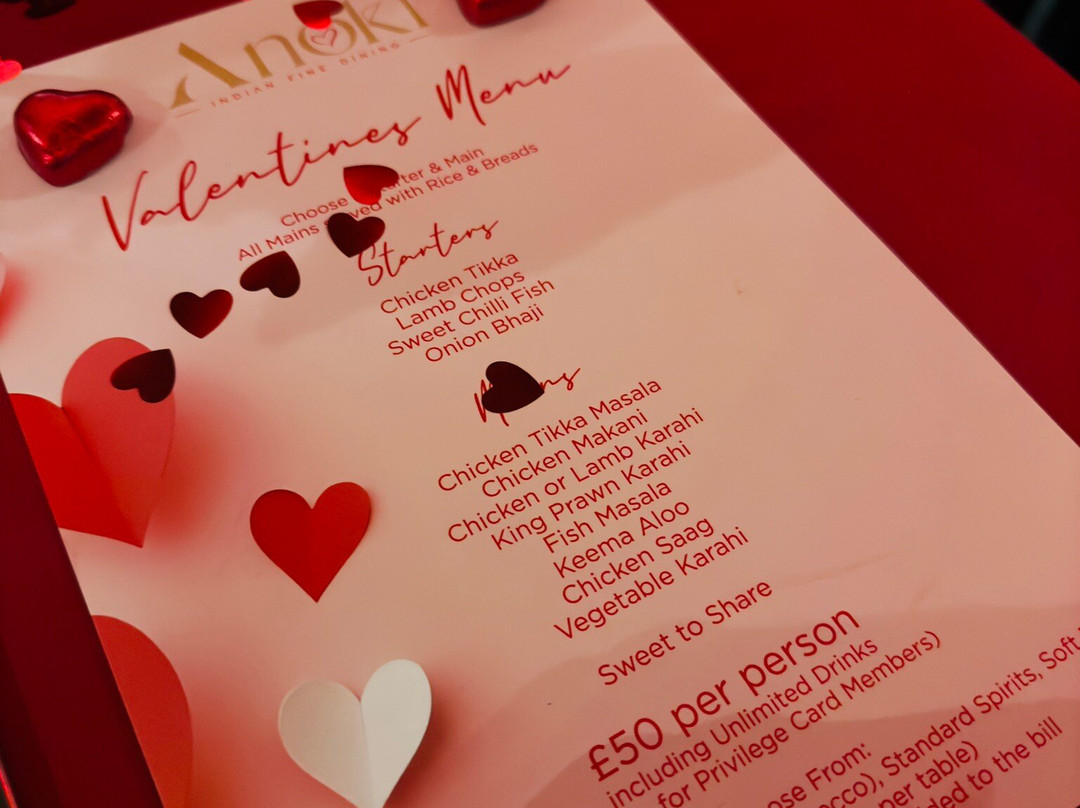 Anoki
INDIAN FINE DINING
Valentines Menu
Choose Starter & Main
All Mains served with Rice & Breads
Starters
Chicken Tikka
Lamb Chops
Sweet Chilli Fish
Onion Bhaji
Mains
Chicken Tikka Masala
Chicken Makani
Chicken or Lamb Karahi
King Prawn Karahi
Fish Masala
Keema Aloo
Chicken Saag
Vegetable Karahi
Sweet to Share
£50 per person
including Unlimited Drinks
for Privilege Card Members)
From:
Standard Spirits, Soft
per table)
to the bill